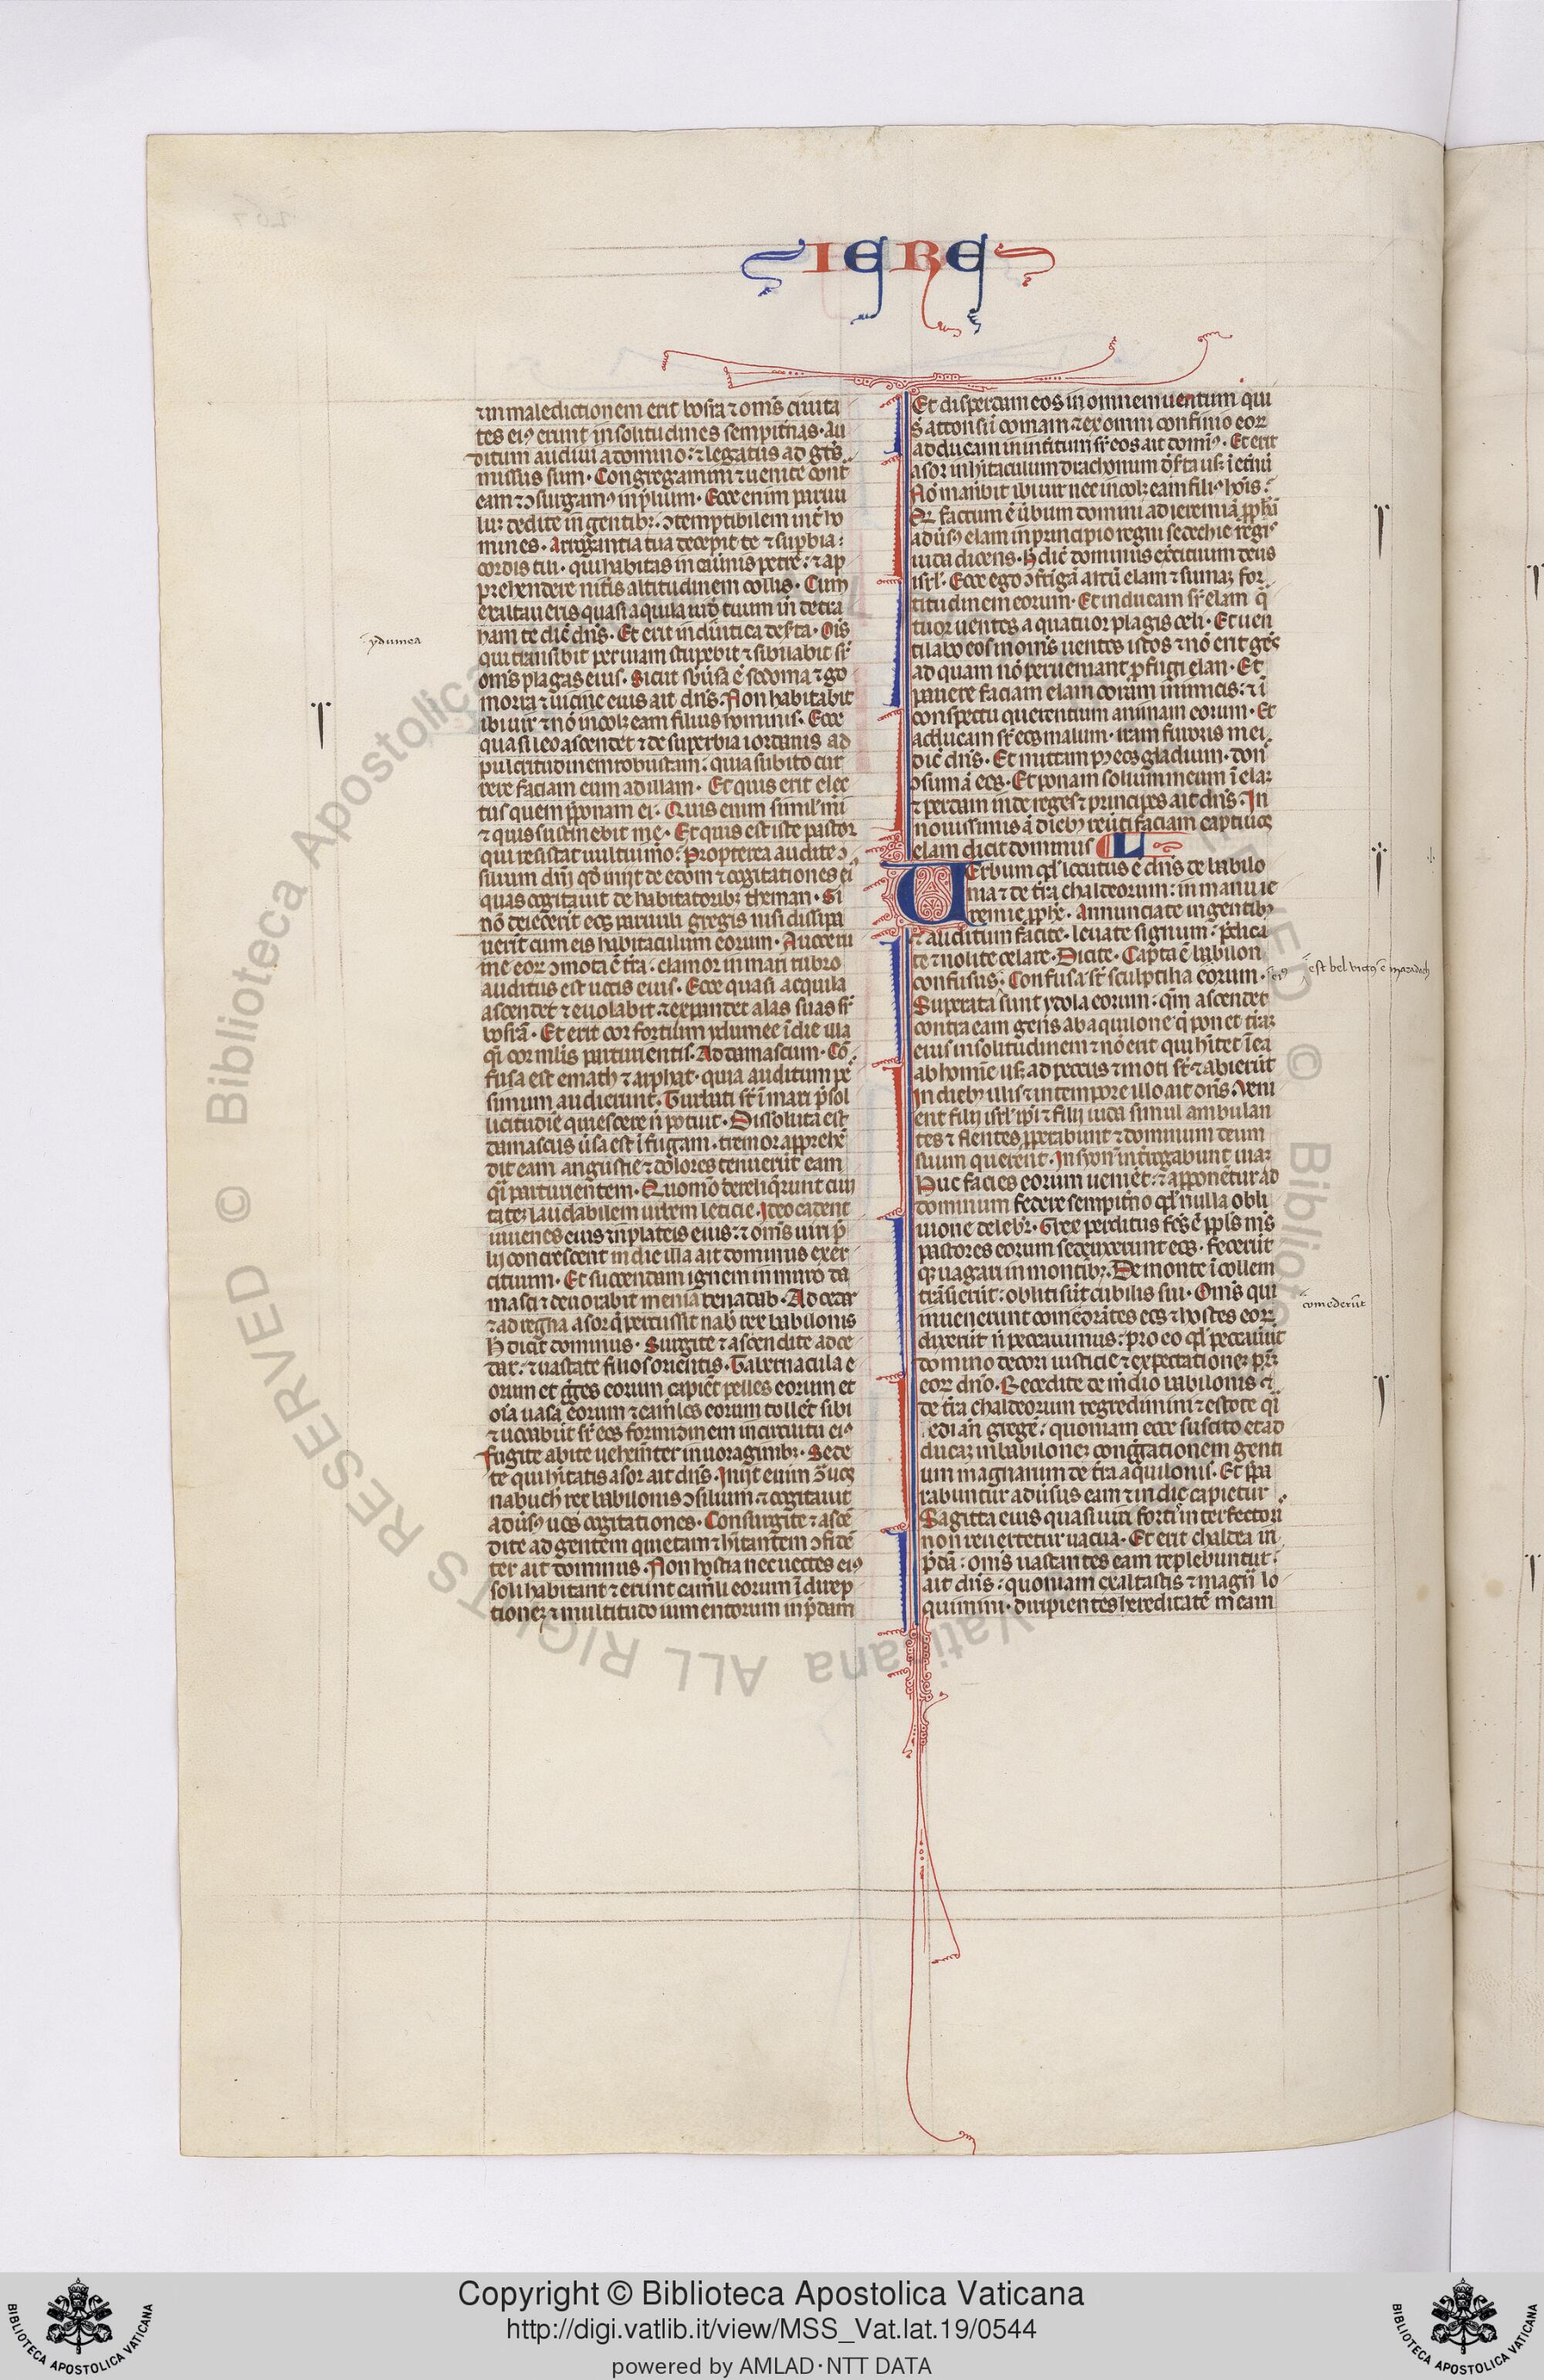 IERE
⁊ in maledictionem erit bosra ⁊ om̄s ciuita
tes ei⁹ erunt in solitudines sempit̄nas. Au
ditum audiui a domino: ⁊ legatus ad gēs
missus sum. Congregamini ⁊ uenite cont̄
eam ⁊ ↄsurgam⁹ in p̄lium. Ecce enim paruu
luꝫ dedite in gentibꝫ. ↄtemptibilem int̄ ho
mines. Arrogantia tua decepit te ⁊ suꝑbia:
cordis tui. qui habitas in cauernis petre: ⁊ ap
prehendere niteris altitudinem collis. Cum
exaltaueris quasi aquila nidū tuum in̄ detra
ham te dic̄ dn̄s. Et erit in ditica desr̄ta. Oīs
qui transibit per uiam stupebit ⁊ sibilabit sr̄
om̄s plagas eius. Sicut sb̄u̾sa ē sodoma ⁊ go
morra ⁊ uicine eius ait dn̄s. Non habitabit
ibi uir ⁊ nō incolꝫ eam filius hominis. Ecce
quasi leo ascendet ⁊ de superbia iordanis ad
pulcritudinem robustam: quia subito cur
rere faciam eum ad illam. Et quis erit elec
tus quem p̄ponam ei. Quis enim simil̄ mi
⁊ quis sustinebit me. Et quis est iste pastor
qui resistat uultui mō: Propterea audite ↄ
silium dn̄i qd̄ inijt de edom ⁊ cogitationes ei⁹
quas cogitauit de habitatoribꝫ theman. Si
nō deiecerit eos paruuli gregis nisi dissipa
uerit cum eis habitaculum eorum. A uoce ru
ine eorꝝ ↄmota ē tr̄a. clamor in mari rubro
auditus est uocis eius. Ecce quasi acquila
ascendet ⁊ euolabit. ⁊ expandet alas suas sr̄
bosrā. Et erit cor fortium ydumee ī die illa
q̄i cor ml̄is parturientis. Ad damascum. Cō
fusa est emath ⁊ arphat. quia auditum pes
simum audierunt. Turbati st̄ ī mari p̄ sol
licitudīe quiescere n̄ potuit. Dissoluta est
damascus u̾sa est ī fugam. tremor apprehē
dit eam angustie ⁊ dolores tenuerūt eam
q̄i parturientem. Quomō dereliq̄runt ciui
tateꝫ laudabilem urbem leticie. Ideo cadent
iuuenes eius in plateis eius: ⁊ om̄s uiri p̄
lij conticescent in die illa ait dominus exer
cituum. Et succendam ignem in muro da
masci ⁊ deuorabit menia benadab. Ad cedar
⁊ ad regna asor q̄ percussit nab̄ rex babilonis
H̄ dicit dominus. Surgite ⁊ ascendite ad ce
dar: ⁊ uastate filios orientis. Tabernacula e
orum et gr̄ges eorum capiēt pelles eorum et
oīa uasa eorum ⁊ cam̄los eorum tollēt sibi
⁊ uocabūt sr̄ eos formidinem in circuitu ei⁹
Fugite abite uehem̄ter in uoraginibꝫ. Sede
te qui hītatis asor ait dn̄s. Inijt enim ↄ̄ uos
nabuch̄ rex babilonis ↄsilium. ⁊ cogitauit
adu̾s⁹ uos cogitationes. Consurgite ⁊ ascē
dite ad gentem quietam ⁊ hītantem ↄfidē
ter ait dominus. Non hostia nec uectes ei⁹
soli habitant ⁊ erunt cam̄li eorum ī direp
tioneꝫ ⁊ multitudo iumentorum in p̄dam
Et disperdam eos in omnem uentum qui
st̄ attonsi ī comam ⁊ ex omni confinio eorꝝ
adducam in̄itum sr̄ eos ait domin⁹. Et erit
asor in hītaculum drachonum d̄srta usꝫ ī et̄nū
Nō manebit ibi uir nec incolꝫ eam fili⁹ hōis:
Qd̄ factum ē u̾bum domini ad ieremiā p̄ph̄ā
adu̾s⁹ elam in principio regni sedechie regis
iuda dicens. H̄ dic̄ dominus exercituum deus
isrl̄. Ecce ego ↄfrīgā arcū elam ⁊ sūmaꝫ for
titudinem eorum. Et inducam sr̄ elam q̄
tuor uentos a quatuor plagis celi. Et uen
tilabo eos in om̄s uentos istos ⁊ nō erit gēs
ad quam nō perueniant p̄fugi elan. Et
pauere faciam elam coram inimicis: ⁊ ī
conspectu querentium animam eorum. Et
adducam sr̄ eos malum. iram furoris mei.
dic̄ dn̄s. Et mittam p⁹ eos gladium. don̄
ↄsumā eos. Et ponam solium meum ī elaꝫ
⁊ perdam inde reges ⁊ principes ait dn̄s. In
nouissimis ā diebꝫ reu̾ti faciam captiuos
elam dicit dominus L
Uerbum qd̄ locutus ē dn̄s de babilo
nia ⁊ de tr̄a chaldeorum: in manu ie
remie p̄ph̄e. Annunciate in gentibꝫ
⁊ auditum facite. leuate signum: p̄dica
te ⁊ nolite celare. Dicite. Capta ē babilon
confusus: Confusa st̄ sculptilia eorum. ei⁹
Superata sunt ydola eorum: qm̄ ascendet
contra eam gens ab aquilone q̄ ponet tr̄aꝫ
eius in solitudinem ⁊ nō erit qui hītet ī ea
ab homīe usꝫ ad pecus ⁊ moti st̄ ⁊ abierūt
In diebꝫ illis ⁊ in tempore illo ait dn̄s. Veni
ent filij isrl̄ ip̄i ⁊ filij iuda simul ambulan
tes ⁊ flentes p̄perabunt ⁊ dominum deum
suum querent. In syon īt̄rogabunt uiaꝫ
Huc facies eorum uenient: ⁊ apponentur ad
dominum federe sempit̄no qd̄ nulla obli
uione delebꝫ. Grex perditus fcs̄ ē ppl̄s ms̄
pastores eorum seduxerunt eos. fecerūt
qꝫ uagari in montibꝫ. De monte ī collem
trāsierūt: obliti sūt cubilis sui. Om̄s qui
inuenerunt comederūtes eos ⁊ hostes eorꝝ
dixerūt n̄ peccauimus: pro eo qd̄ peccauerūt
domino decori iusticie ⁊ expectationeꝫ pr̄ꝫ
eorꝝ dn̄o. Recedite de m̄dio babilonis ⁊
de tr̄a chaldeorum regredimini ⁊ estote q̄i
edi añ gregē: quoniam ecce suscito et ad
ducaꝫ in babiloneꝫ congr̄gationem genti
um magnarum de tr̄a aquilonis. Et p̄pa
rabuntur adu̾sus eam ⁊ inde capietur.
Sagitta eius quasi uiri fortis interfectori
non reuertetur uacua. Et erit chaldea in
p̄dā: om̄s uastantes eam replebuntur:
ait dn̄s: quoniam exaltastis ⁊ maḡ lo
quimini. diripientes hereditatē meam
ydumea
est bel uict⁹ ē maradach
comederūt
Copyright © Biblioteca Apostolica Vaticana
http://digi.vatlib.it/view/MSS_Vat.lat.19/0544
powered by AMLAD·NTT DATA
BIBLIOTECA APOSTOLICA VATICANA
BIBLIOTECA APOSTOLICA VATICANA
© Biblioteca Apostolica Vaticana ALL RIGHTS RESERVED